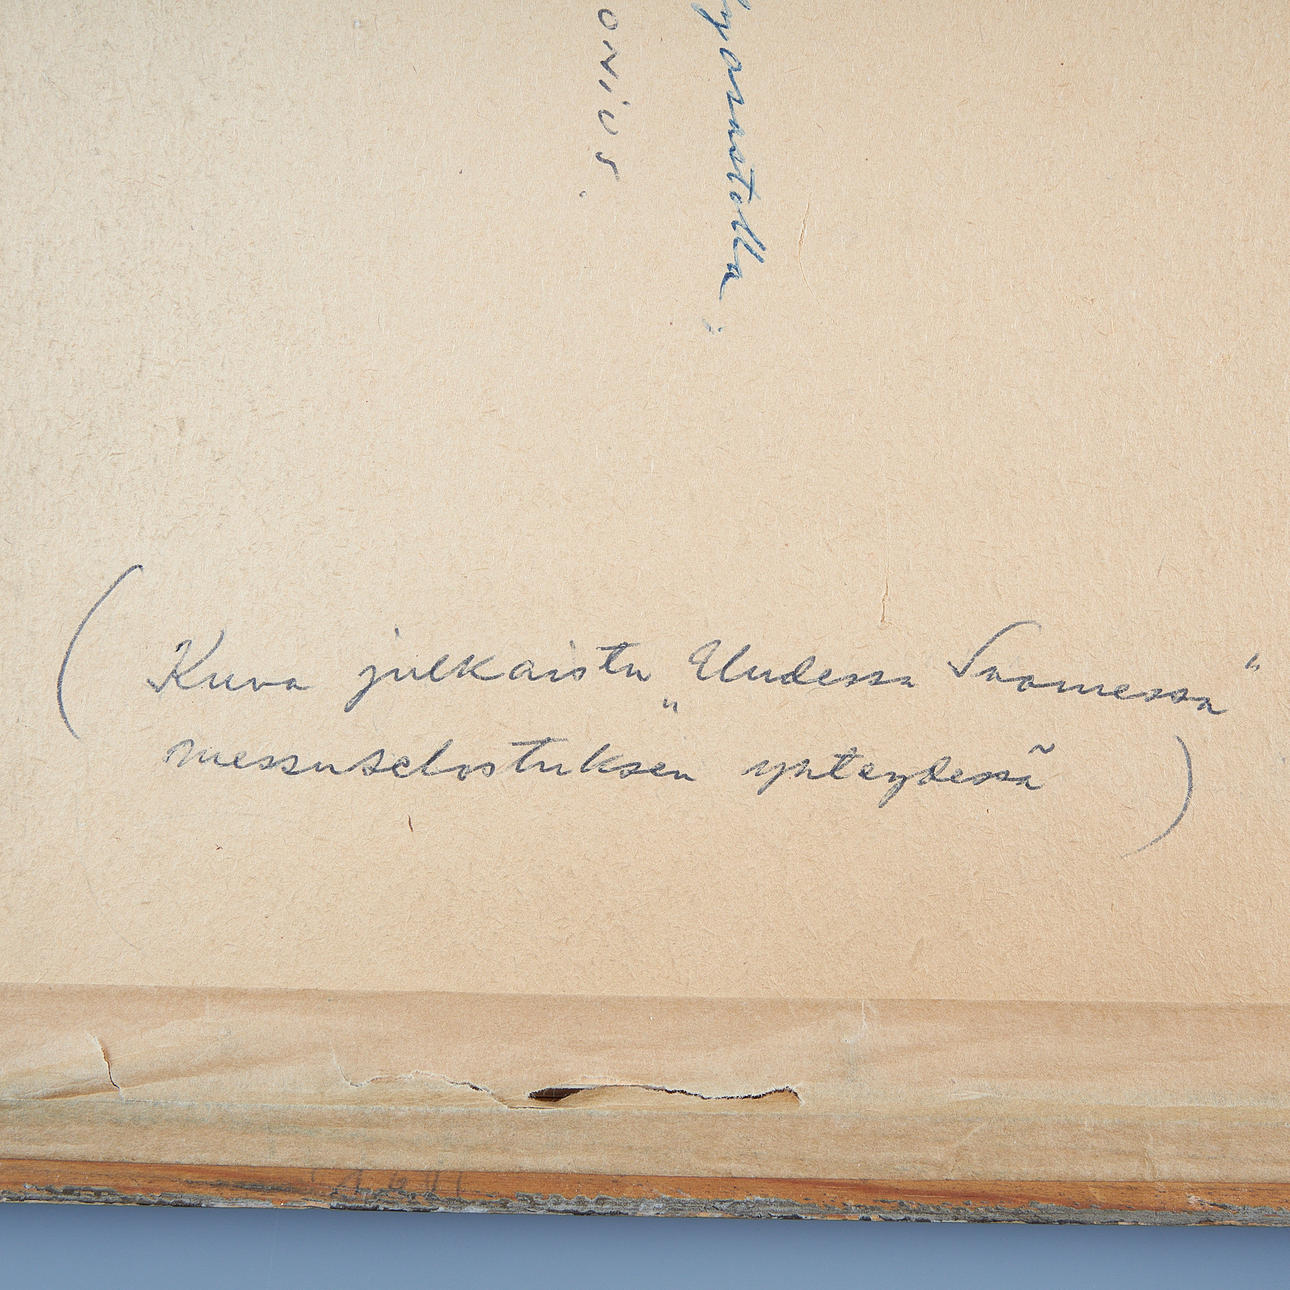 onius.
(Kuva julkaistu "Uudessa Suomessa"
messuselostuksen yhteydessä)